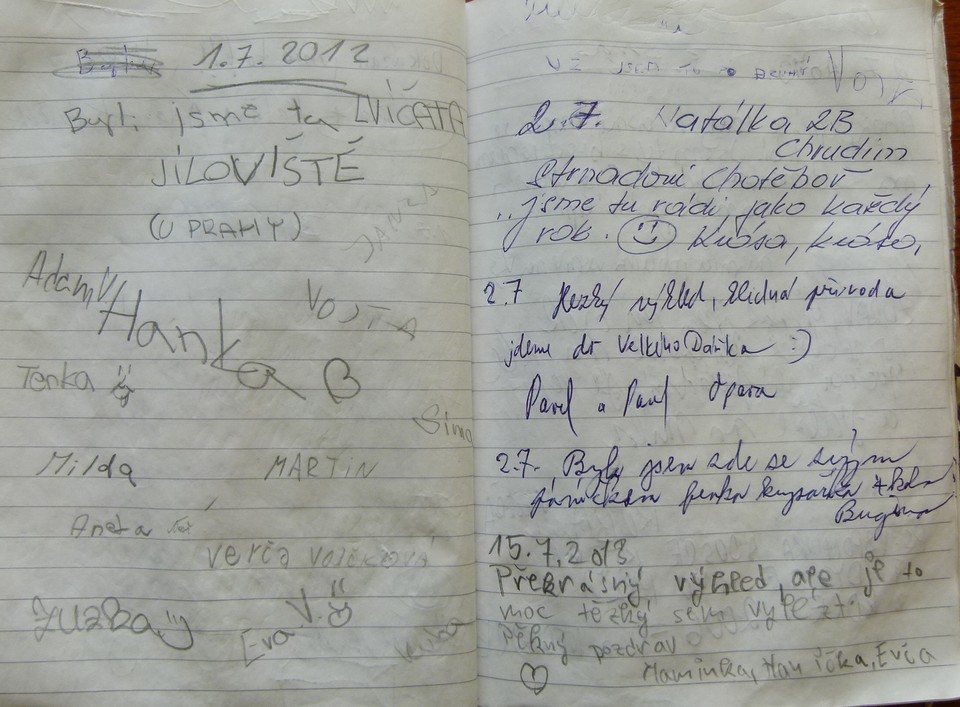 1.7.2012
Byli jsme tu LVÍČATA
JÍLOVIŠTĚ
(U PRAHY)
Adam V
Hanka B
VOJTA
Tenka
Sima
Milda
MARTIN
Aneta
Verča
Zuzka
Eva
V.
už jsem
2.7. Natálka 2B
Chrudim
Strnadovi Chotěboř
..jsme tu rádi, jako každý
rok. Krása, krása,
2.7 Hezký výhled, klidná příroda
jdeme do Velkého Dářka :)
Pavel a Pavel Opara
2.7. Byla jsem zde se svým
páníčkem
15.7.2013
Překrásný výhled, ale je to
moc těžký sem vylézt.
Pěkný pozdrav
Maminka, Hanička, Evča